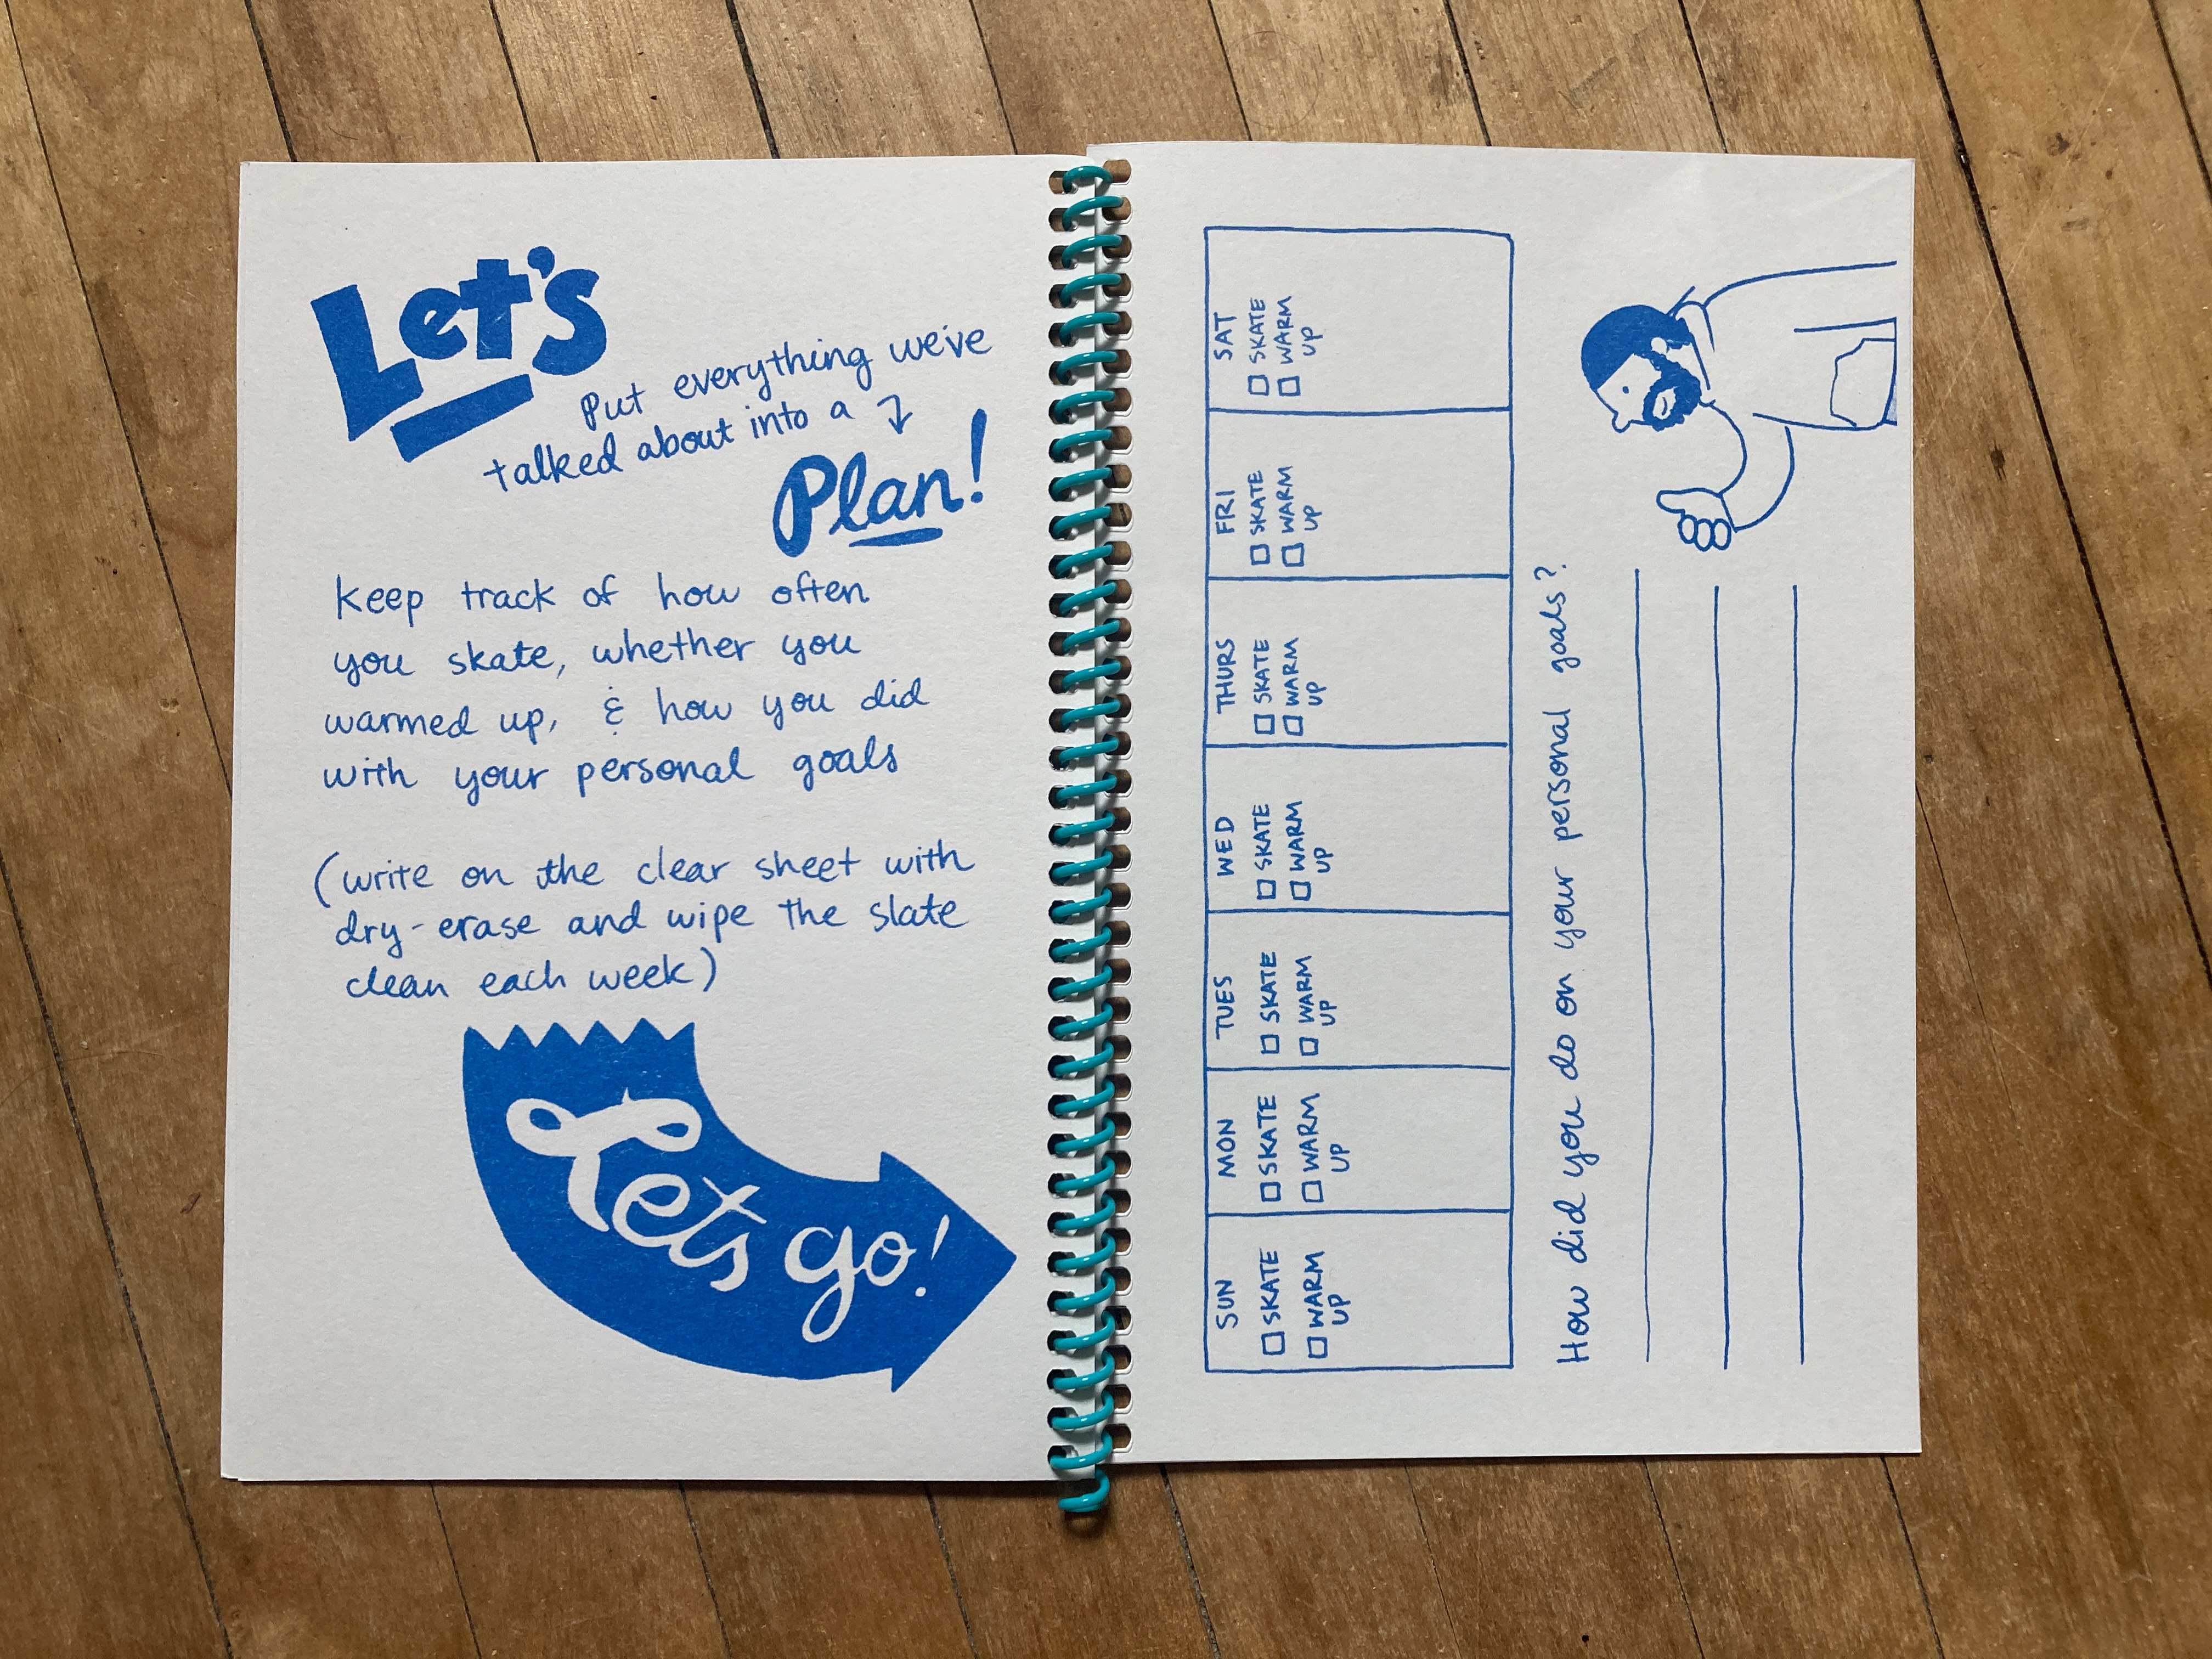 Let's
Put everything we've
talked about into a
Plan!
keep track of how often
you skate, whether you
warmed up, & how you did
with your personal goals
(write on the clear sheet with
dry-erase and wipe the slate
clean each week)
Lets go!
SUN
SKATE
WARM
UP
MON
SKATE
WARM
UP
TUES
SKATE
WARM
UP
WED
SKATE
WARM
UP
THURS
SKATE
WARM
UP
FRI
SKATE
WARM
UP
SAT
SKATE
WARM
UP
How did you do on your personal goals?